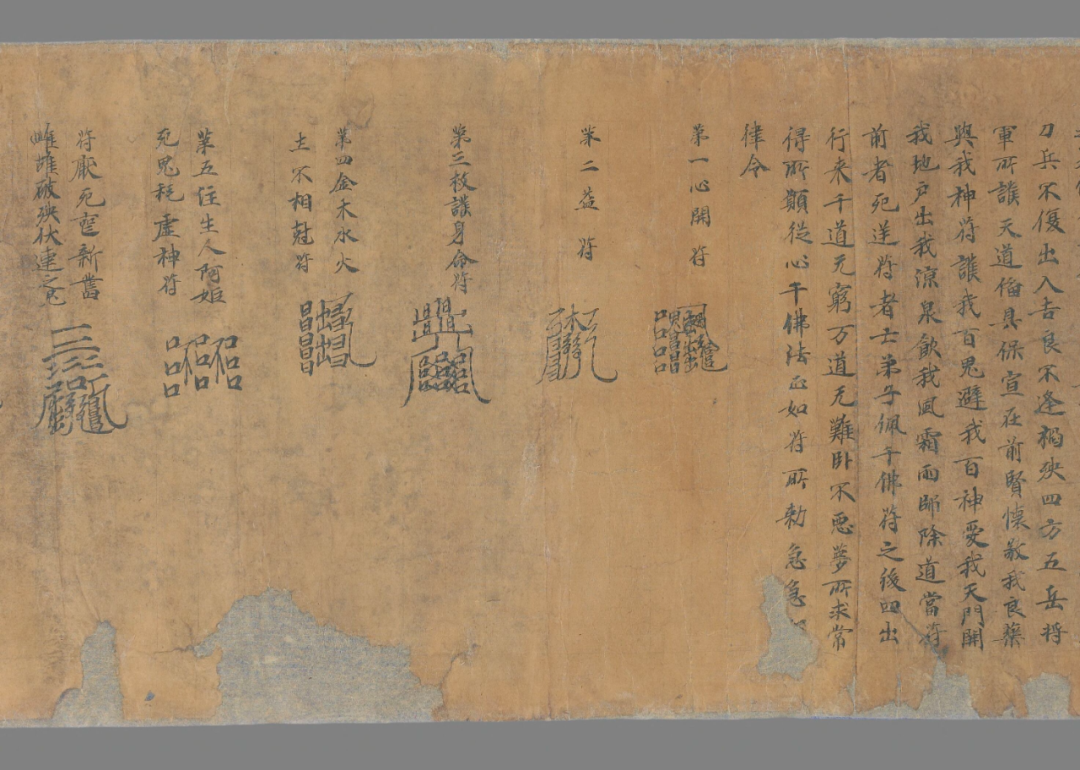 刀兵不傷出入吉良不逢禍殃四方五岳將
軍所護天道傴具保宣在前賢懷敬我良藥
與我神符護我百鬼避我百神愛我天門開
我地戶出我涼泉飲我風霜雨師除道當符
前者死逆符者亡弟子佩千佛符之後四出
行来千道无窮万道无難卧不惡夢所求常
得所願從心千佛法正如符所勑急急
律令
第一心開符
第二益符
第三枚護身命符
第四金木水火
土不相尅符
第五住生人阿姬
死鬼耗虛神符
符厭死 新舊
雌雄破殃伏連之